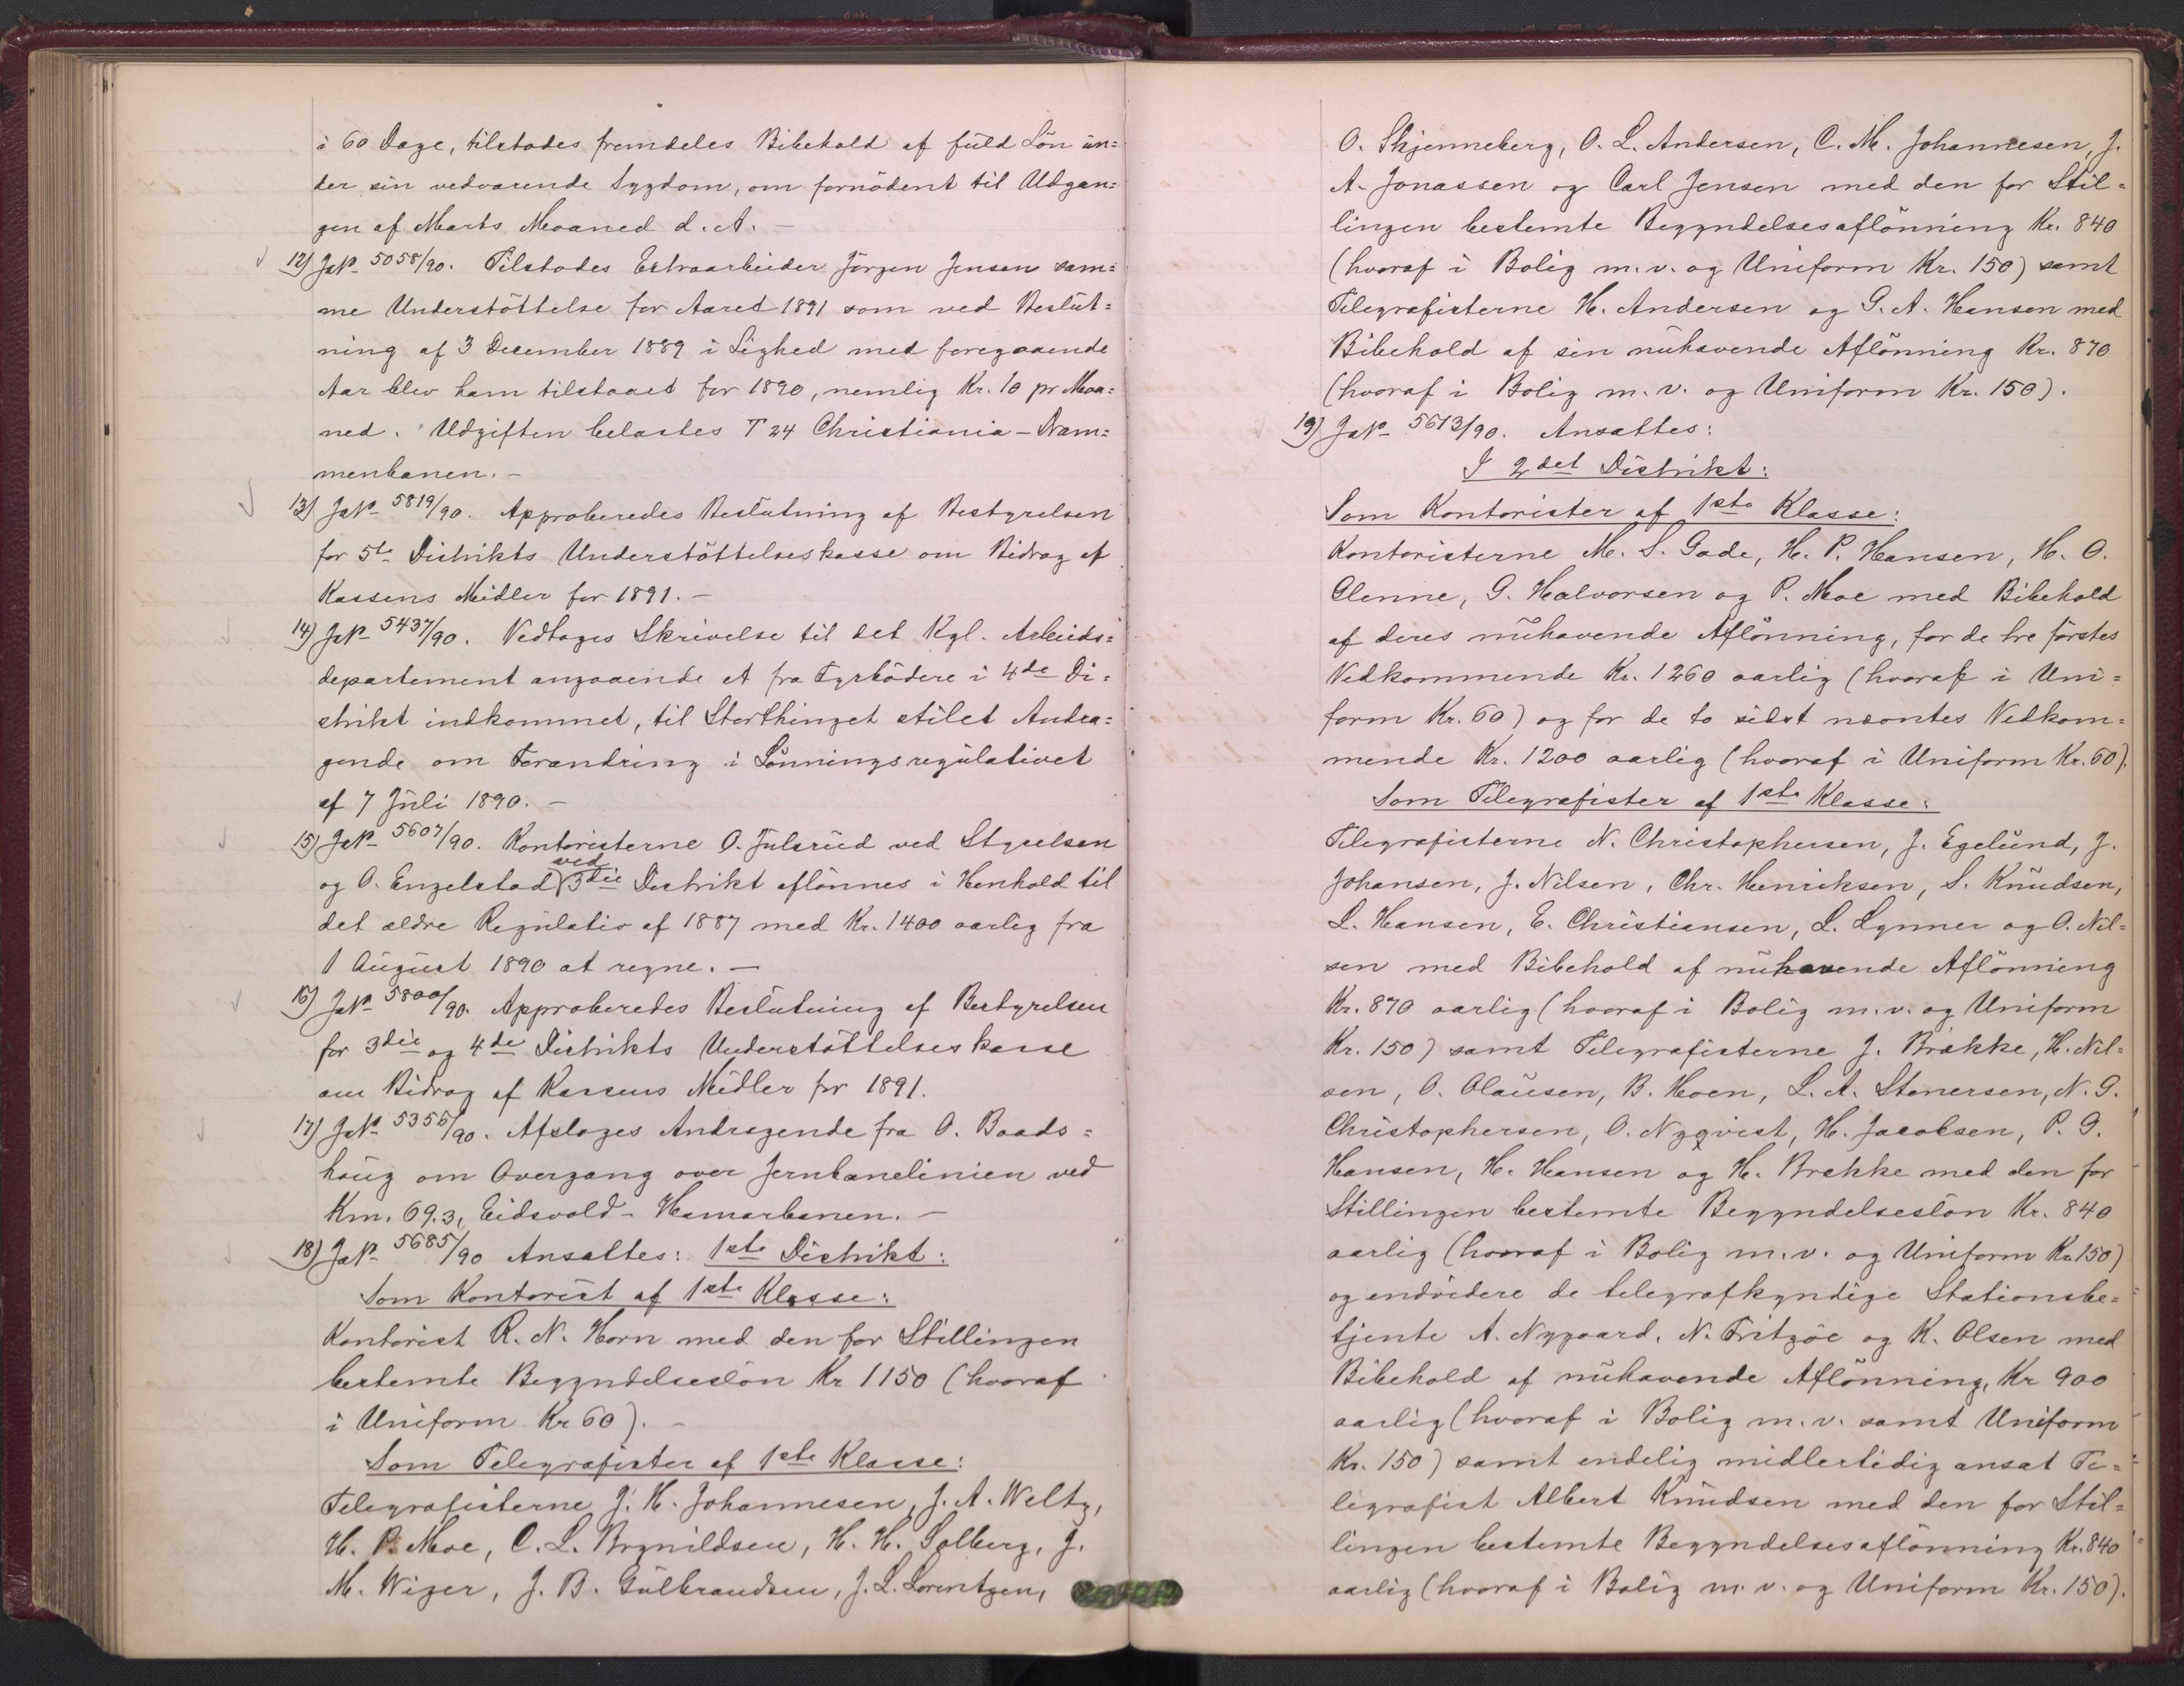 i 60 Dage, tilstodes fremdeles Bibehold af fuld Lön un=
der sin vedvarende Sygdom, om fornödent til Udgan=
gen af Marts Maaned d. A. –
12) JNo 5058/90. Tilstodes Extraarbeider Jörgen Jensen sam=
me Understöttelse for Aaret 1891 som ved Beslut=
ning af 3 December 1889 i Lighed med foregaaende
Aar blev ham tilstaaet for 1890, nemlig Kr. 10 pr Maa=
ned. Udgiften belastes T 24 Christiania – Dram=
menbanen. –
13) JNo 5819/90. Approberedes Beslutning af Bestyrelsen
for 5te Distrikts Understöttelseskasse om Bidrag af
Kassens Midler for 1891. –
14) JNo 5437/90. Vedtoges Skrivelse til det Kgl. Arbeids=
departement angaaende et fra Fyrbödere i 4de Di=
strikt indkommet, til Storthinget stilet Andra=
gende om Forandring i Lönningsregulativet
af 7 Juli 1890. –
15) JNo 5607/90. Kontoristerne O. Julsrud ved Styrelsen
og O. Engelstad ved 3die Distrikt aflönnes i Henhold til
det ældre Regulativ af 1887 med Kr. 1400 aarlig fra
1 August 1890 at regne. –
16) JNo 5800/90. Approberedes Beslutning af Bestyrelsen
for 3die og 4de Distrikts Understöttelseskasse
om Bidrag af Kassens Midler for 1891.
17) JNo 5356/90. Afsloges Andragende fra O. Baads=
houg om Overgang over Jernbanelinien ved
Km. 69.3, Eidsvold – Hamarbanen. –
18) JNo 5685/90 Ansattes: 1ste Distrikt:
Som Kontorist af 1ste Klasse:
Kontorist R. N. Horn med den for Stillingen
bestemte Begyndelseslön Kr 1150 (hvoraf
i Uniform Kr 60). –
Som Telegrafister af 1ste Klasse:
Telegrafisterne J. H. Johannesen, J. A. Weltz,
H. P. Moe, C. L. Brynildsen, H. H. Solberg, J.
M. Wiger, J. B. Gulbrandsen, J. L. Lorentzen,
O. Skjenneberg, O. L. Andersen, C. M. Johannesen, J.
A. Jonassen og Carl Jensen med den for Stil=
lingen bestemte Begyndelsesaflönning Kr. 840
(hvoraf i Bolig m. v. og Uniform Kr. 150) samt
Telegrafisterne H. Andersen og G. A. Hansen med
Bibehold af sin nuhavende Aflönning Kr. 870
(hvoraf i Bolig m. v. og Uniform Kr. 150).
19) JNo 5613/90. Ansattes:
I 2det Distrikt:
Som Kontorister af 1ste Klasse:
Kontoristerne M. S. Gade, H. P. Hansen, H. O.
Glenne, G. Halvorsen og P. Moe med Bibehold
af deres nuhavende Aflönning, for de tre förstes
Vedkommende Kr. 1260 aarlig (hvoraf i Uni=
form Kr. 60) og for de to sidst nævntes Vedkom=
mende Kr. 1200 aarlig (hvoraf i Uniform Kr. 60).
Som Telegrafister af 1ste Klasse:
Telegrafisterne N. Christophersen, J. Egelund, J.
Johansen, J. Nilsen, Chr. Henriksen, S. Knudsen,
L. Hansen, E. Christiansen, L. Lynner og O. Nil=
sen med Bibehold af nuhavende Aflönning
Kr. 870 aarlig (hvoraf i Bolig m. v. og Uniform
Kr. 150) samt Telegrafisterne J. Brække, H. Nil=
sen, O. Olausen, B. Hoen, L. A. Stenersen, N. G.
Christophersen, O. Nyqvist, H. Jacobsen, P. G.
Hansen, H. Hansen og H. Brekke med den for
Stillingen bestemte Begyndelseslön Kr. 840
aarlig (hvoraf i Bolig m. v. og Uniform Kr. 150)
og endvidere de telegrafkyndige Stationsbe=
tjente A. Nygaard, N. Fritzöe og K. Olsen med
Bibehold af nuhavende Aflönning, Kr 900
aarlig (hvoraf i Bolig m. v. samt Uniform
Kr. 150) samt endelig midlertidig ansat Te=
legrafist Albert Knudsen med den for Stil=
lingen bestemte Begyndelsesaflönning Kr. 840
aarlig (hvoraf i Bolig m. v. og Uniform Kr. 150).